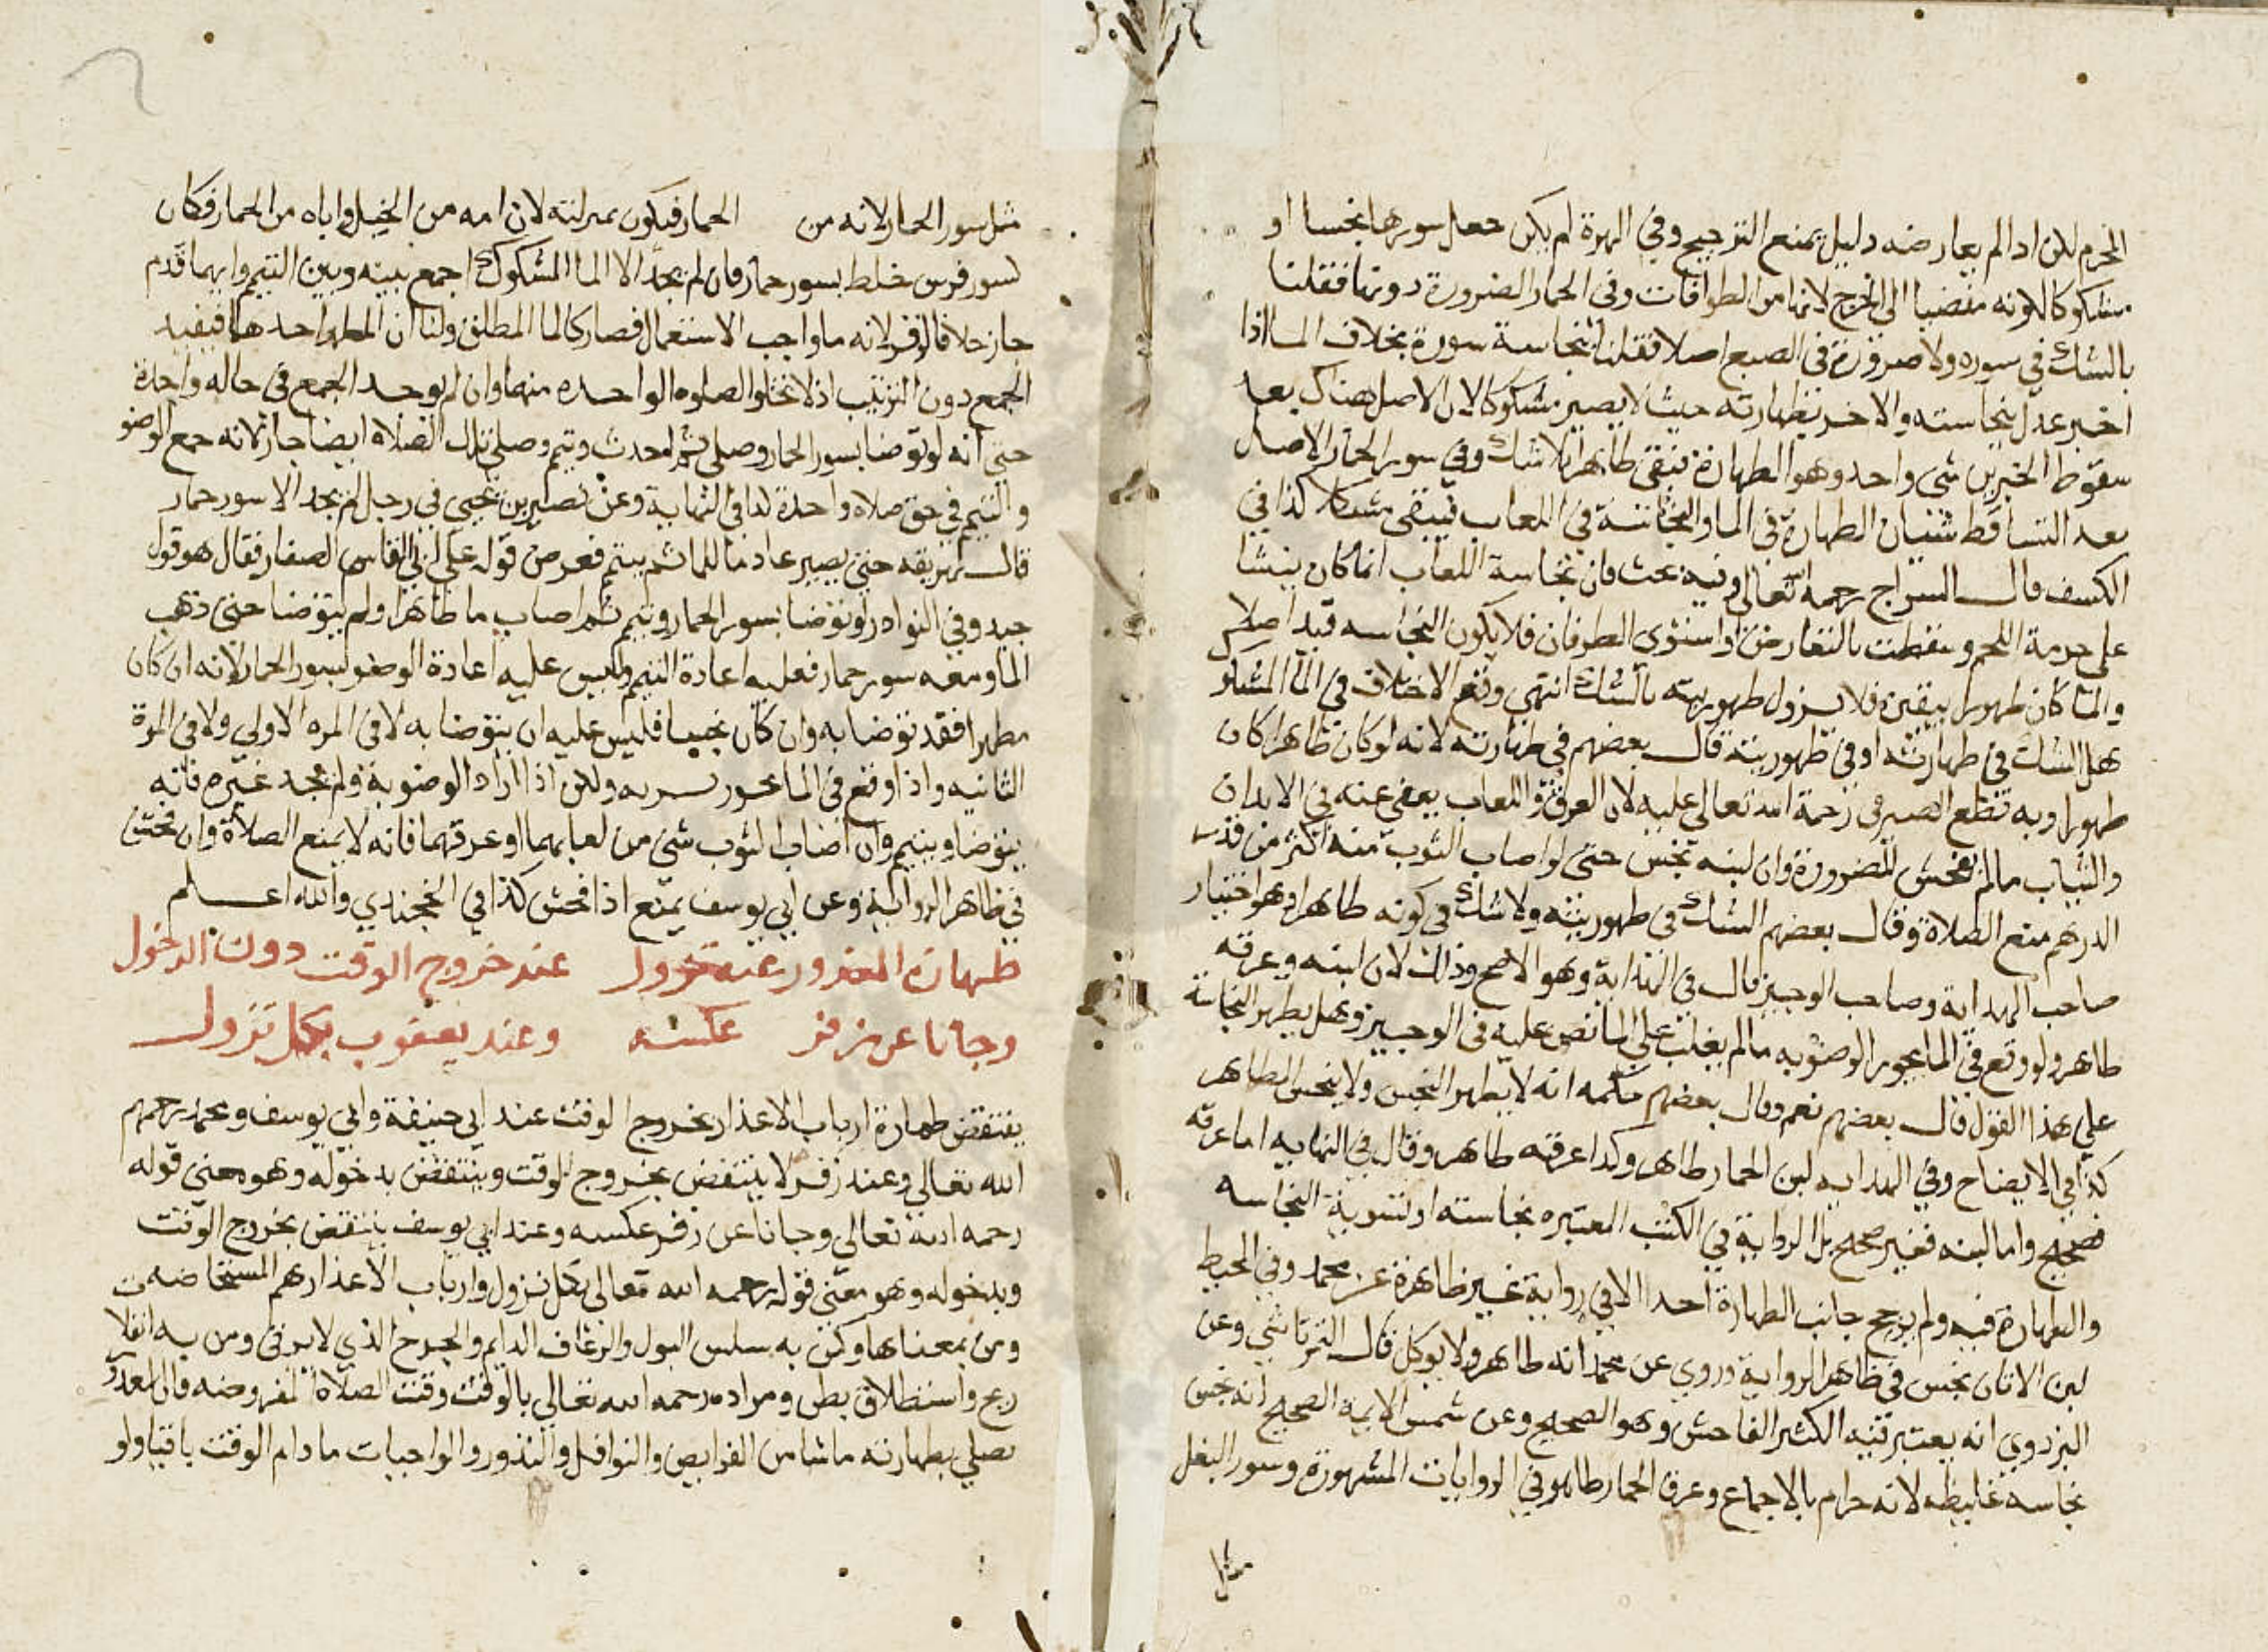 المحرم لكن اذا لم يعارضه دليل يمنع الترجيح وفي الهرة لم يكن جعل سورها نجسا او
مشكوكا لكونه مفضيا الى الحرج لانها من الطوافات وفي الحمار الضرورة دونها فقلنا
بالشك في سوره ولا ضرورة في السبع اصلا فقلنا بنجاسة سوره بخلاف الماء اذا
اخبر عدل بنجاسته والاخر بطهارته حيث لا يصير مشكوكا لان الاصل هناك بعد
سقوط الخبرين شي واحد وهو الطهارة فبقى طاهرا بلا شك وفي سور الحمار الاصل
بعد التساقط شيئان الطهارة في الما والنجاسة في اللعاب فيبقى مشكلا كذا في
الكشف قال السراج رحمه الله تعالى وفيه بحث فان نجاسة اللعاب انما كان ينشا
على حرمة اللحم وسقطت بالتعارض واستوى الطرفان فلا يكون النجاسه قيد اصلا
والما كان طهورا بيقين فلا يزول طهوريته بالشك انتهى وثم الاختلاف في الما المشكوك
هل الشك في طهارته او في طهوريته قال بعضهم في طهارته لانه لو كان طاهرا كان
طهورا وبه قطع الصيرفي رحمة الله تعالى عليه لان العرق واللعاب يعفى عنه في الابدان
والثياب ما لم يفحش للضرورة وان لبنه نجس حتى لو اصاب الثوب منه اكثر من قدر
الدرهم منع الصلاة وقال بعضهم الشك في طهوريته ولا شك في كونه طاهرا وهو اختيار
صاحب الهداية وصاحب الوجيز قال في الهداية وهو الاصح وذلك لان لبنه وعرقه
طاهر ولو وقع في الما يجوز الوضو به ما لم يغلب على الما نص عليه في الوجيز وهل يطهر النجاسة
على هذا القول قال بعضهم نعم وقال بعضهم حكمه انه لا يطهر النجس ولا ينجس الطاهر
كذا في الايضاح وفي الهدايه لبن الحمار طاهر وكذا عرقه طاهر وقال في النهايه اما عرقه
فصحيح واما لبنه فغير صحيح بل الرواية في الكتب المعتبره نجاسته او تسوية النجاسه
والطهارة فيه ولم يرجح جانب الطهارة احد الا في رواية غير ظاهرة عن محمد وفي المحيط
لبن الاتان نجس في ظاهر الرواية وروي عن محمد انه طاهر ولا يوكل قال التمرتاشي وعن
البزدوي انه يعتبر فيه الكثير الفاحش وهو الصحيح وعن شمس الايمة الصحيح انه نجس
نجاسه غليظه لانه حرام بالاجماع وعرق الحمار طاهر في الروايات المشهورة وسور البغل
مثل
مثل سور الحمار لانه من الحمار فيكون بمنزلته لان امه من الخيل واباه من الحمار فكان
كسور فرس خلط بسور حمار فان لم يجد الا الما المشكوك اجمع بينه وبين التيمم وايهما قدم
جاز خلافا لزفر لانه ما واجب الاستعمال فصار كالما المطلق ولنا ان المطهر احدهما فيفيد
الجمع دون الترتيب اذ لا تخلوا الصلوه الواحده منهما وان لم يوجد الجمع في حاله واحدة
حتى انه لو توضا بسور الحمار وصلى ثم احدث وتيمم وصلى تلك الصلاة ايضا جاز لانه جمع الوضو
والتيمم في حق صلاة واحدة كذا في النهاية وعن نصير بن يحيى في رجل لم يجد الا سور حمار
قال يهريقه حتى يصير عادما للما ثم يتيمم فعرض قوله على ابي القاسم الصفار فقال هو قول
جيد وفي النوادر لو توضا بسور الحمار وتيمم ثم اصاب ما طاهرا ولم يتوضا حتى ذهب
الما ومعه سور حمار فعليه اعادة التيمم وليس عليه اعادة الوضو بسور الحمار لانه ان كان
مطهرا فقد توضا به وان كان نجسا فليس عليه ان يتوضا به لا في المره الاولى ولا في المرة
الثانيه واذا وقع في الما يجوز شربه ولكن اذا اراد الوضو به ولم يجد غيره فانه
يتوضا ويتيمم وان اصاب الثوب شي من لعابهما او عرقهما فانه لا يمنع الصلاة وان فحش
في ظاهر الرواية وعن ابي يوسف يمنع اذا فحش كذا في الخجندي والله اعلم
طهارة المعذور عنه تزول عند خروج الوقت دون الدخول
وجانا عن زفر عكسه وعند يعقوب بكل تزول
ينتقض طهارة ارباب الاعذار بخروج الوقت عند ابي حنيفة وابي يوسف ومحمد رحمهم
الله تعالى وعند زفر لا ينتقض بخروج الوقت وينتقض بدخوله وهو معنى قوله
رحمه الله تعالى وجانا عن زفر عكسه وعند ابي يوسف ينتقض بخروج الوقت
وبدخوله وهو معنى قوله رحمه الله تعالى بكل تزول وارباب الاعذار هم المستحاضه
ومن بمعناها وكمن به سلس البول والرعاف الدايم والجرح الذي لا يرقى ومن به انفلات
ريح واستطلاق بطن ومراده رحمه الله تعالى بالوقت وقت الصلاة المفروضه فان المعذور
يصلي بطهارته ما شا من الفرايض والنوافل والنذور والواجبات ما دام الوقت باقيا ولو